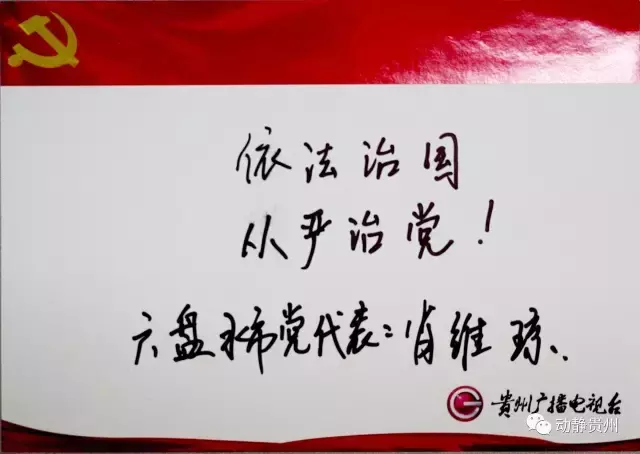 依法治国
从严治党！
六盘水市党代表：肖维琼
贵州广播电视台
动静贵州